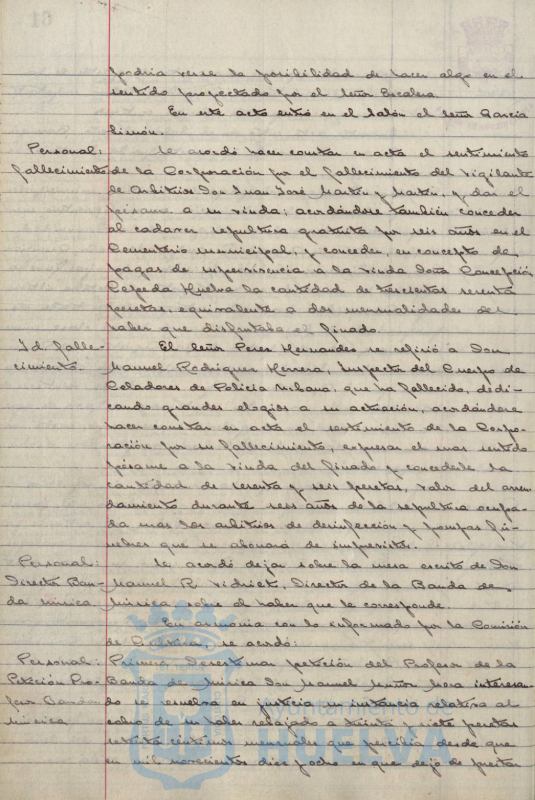 podria verse la posibilidad de hacer algo en el
sentido proyectado por el Señor Escalera.
En este acto entró en el Salón el Señor Garcia
Limón.
Personal: Se acordó hacer constar en acta el sentimiento
fallecimiento de la Corporación por el fallecimiento del vigilante
de Arbitrios Don Juan José Martin y Martin, y dar el
pésame a su viuda; acordándose también conceder
al cadaver sepultura gratuita por seis años en el
Cementerio municipal, y conceder, en concepto de
pagas de supervivencia a la viuda Doña Concepción
Cepeda Huelva la cantidad de trescientas sesenta
pesetas, equivalente a dos mensualidades del
haber que disfrutaba el finado.
Id. falle- El Señor Perez Hernandez se refirió a Don
cimiento. Manuel Rodriguez Herrera, Inspector del Cuerpo de
Celadores de Policia Urbana, que ha fallecido, dedi-
cando grandes elogios a su actuación, acordándose
hacer constar en acta el sentimiento de la Corpo-
ración por su fallecimiento, expresar el mas sentido
pésame a la viuda del finado y concederle la
cantidad de sesenta y seis pesetas, valor del arren-
damiento durante seis años de la sepultura ocupa-
da mas los arbitrios de desinfección y pompas fú-
nebres que se abonará de imprevistos.
Personal: Se acordó dejar sobre la mesa escrito de Don
Director Ban- Manuel R. Vidriet, Director de la Banda de
da música. música sobre el haber que le corresponde.
En armonia con lo informado por la Comisión
de Cultura, se acordó:
Personal: Primero: Desestimar petición del Profesor de la
Petición Pro- Banda de música Don Manuel Muñoz Mesa interesan-
fesor Banda do se resuelva en justicia su instancia relativa al
música cobro de su haber rebajado a treinta y siete pesetas
céntimos mensuales que percibia desde que
en mil novecientos diez y ocho en que dejó de prestar
Ayuntamiento de
HUELVA